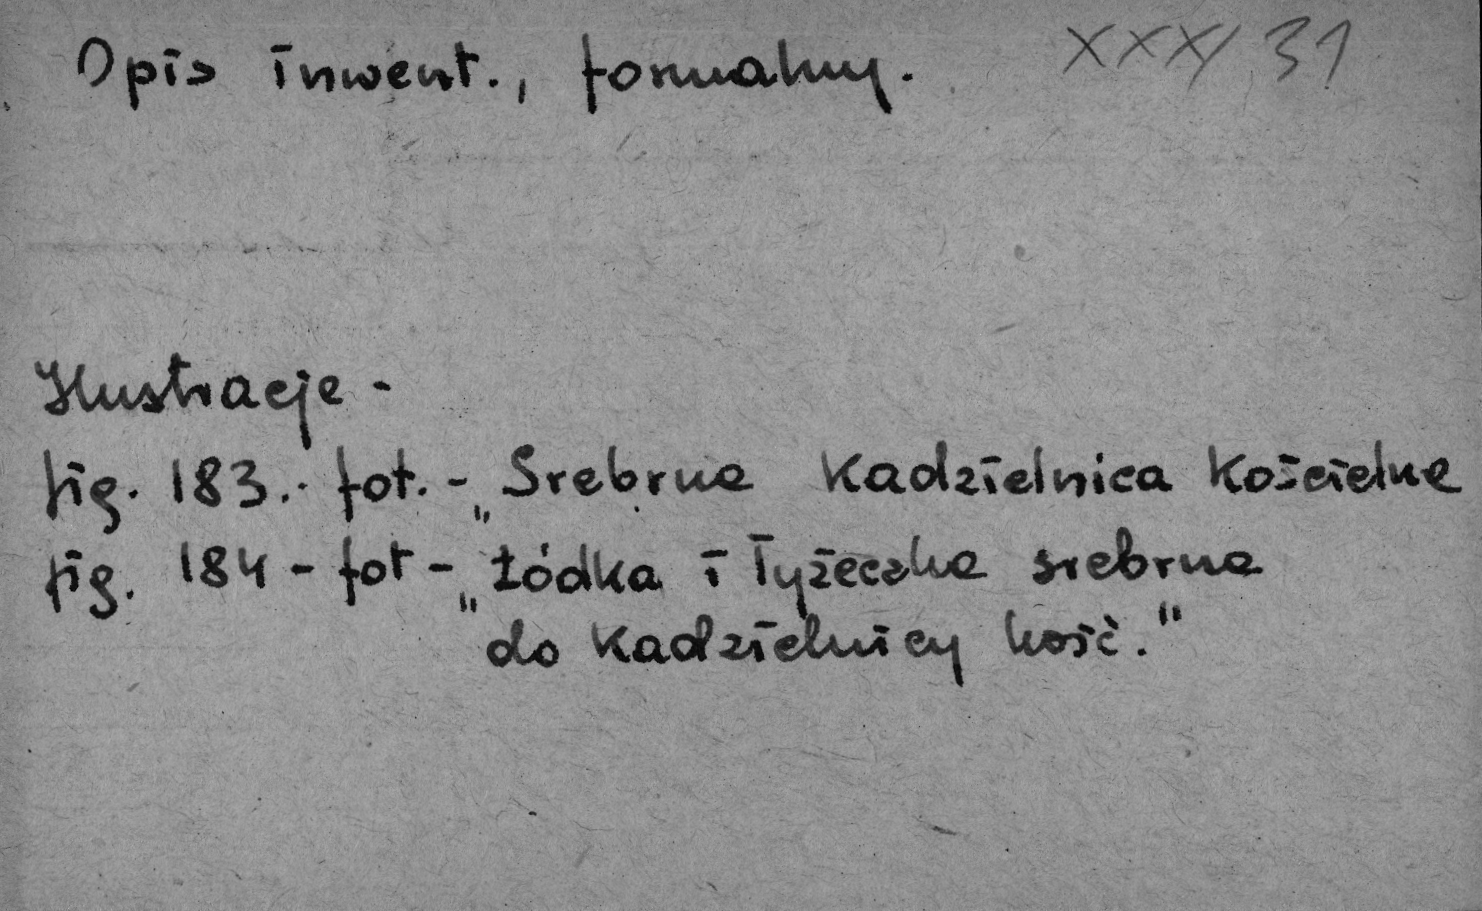 Opis inwent., formalny. XXX/31
Ilustracje -
fig. 183.- fot. - „Srebrna kadzielnica kościelna
fig. 184 - fot - „Łódka i łyżeczka srebrna
do kadzielnicy kość."